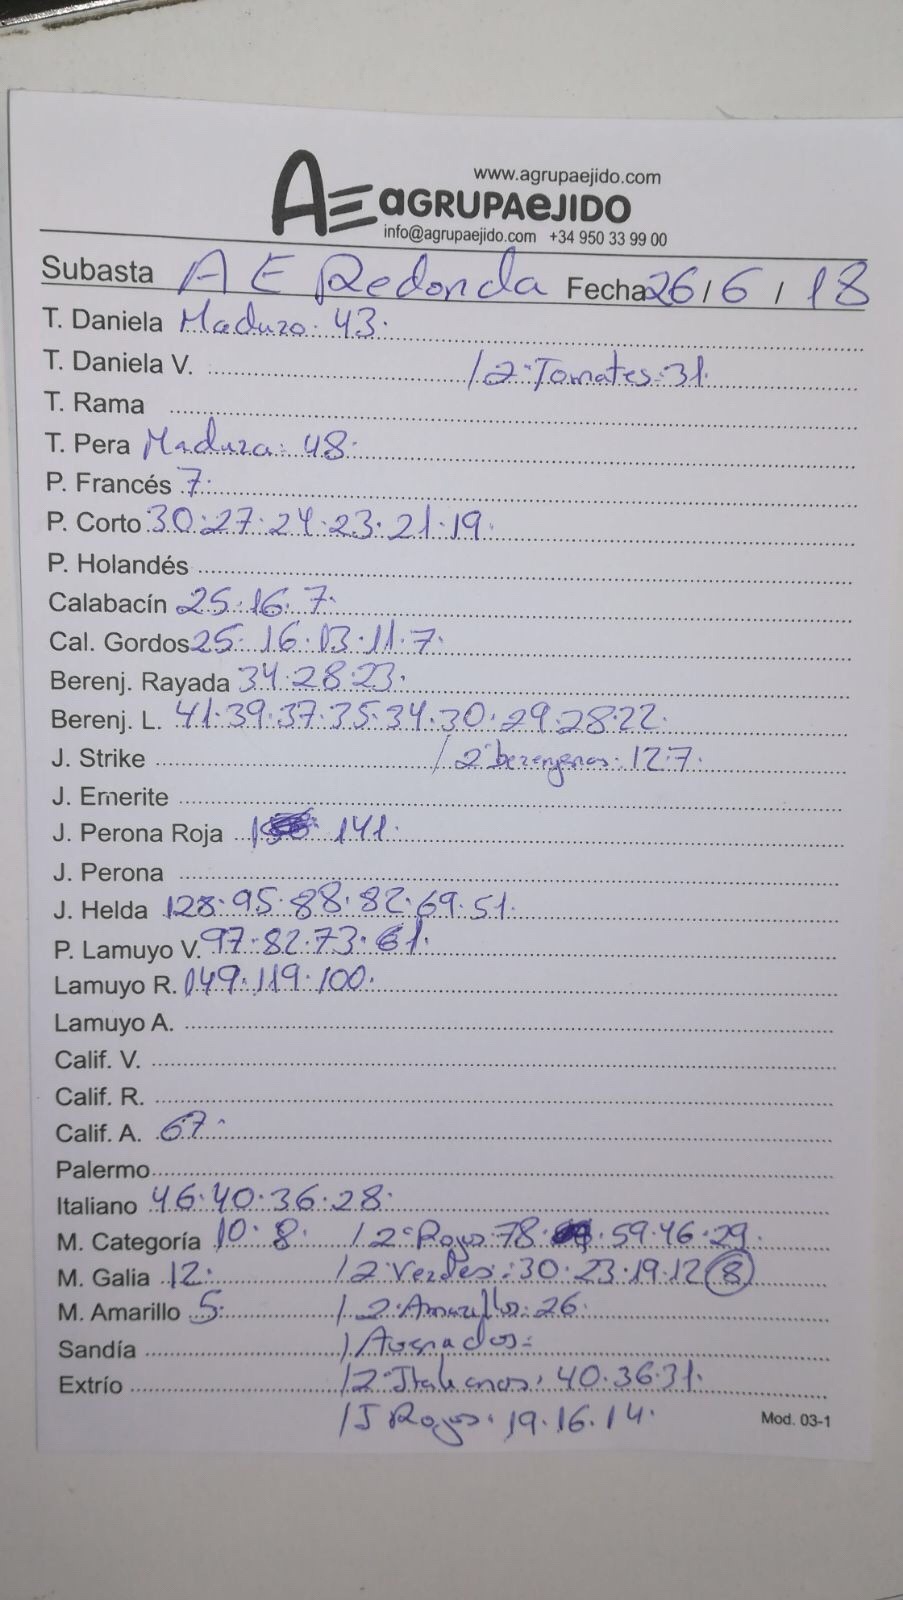 www.agrupaejido.com
AE aGRUPAeJIDO
info@agrupaejido.com +34 950 33 99 00
Subasta A E Redonda Fecha 26/6/18
T. Daniela Maduro. 43.
T. Daniela V. / 2ª Tomates. 31.
T. Rama
T. Pera Madura. 48.
P. Francés 7.
P. Corto 30.27.24.23.21.19.
P. Holandés
Calabacín 25.16.7.
Cal. Gordos 25.16.13.11.7.
Berenj. Rayada 34.28.23.
Berenj. L. 41.39.37.35.34.30.29.28.22.
J. Strike / 2ª berenjenas. 12.7.
J. Emerite
J. Perona Roja 141.
J. Perona
J. Helda 128.95.88.82.69.51.
P. Lamuyo V. 97.82.73.61.
Lamuyo R. 149.119.100.
Lamuyo A.
Calif. V.
Calif. R.
Calif. A. 67.
Palermo
Italiano 46.40.36.28.
M. Categoría 10.8. / 2ª Rojos 78. 59.46.29.
M. Galia 12. / 2 Verdes: 30.23.19.12 8
M. Amarillo 5. / 2 Amarillos: 26.
Sandía / Asurados:
Extrío / 2ª Italianos. 40.36.31.
/ J Rojos. 19.16.14.
Mod. 03-1